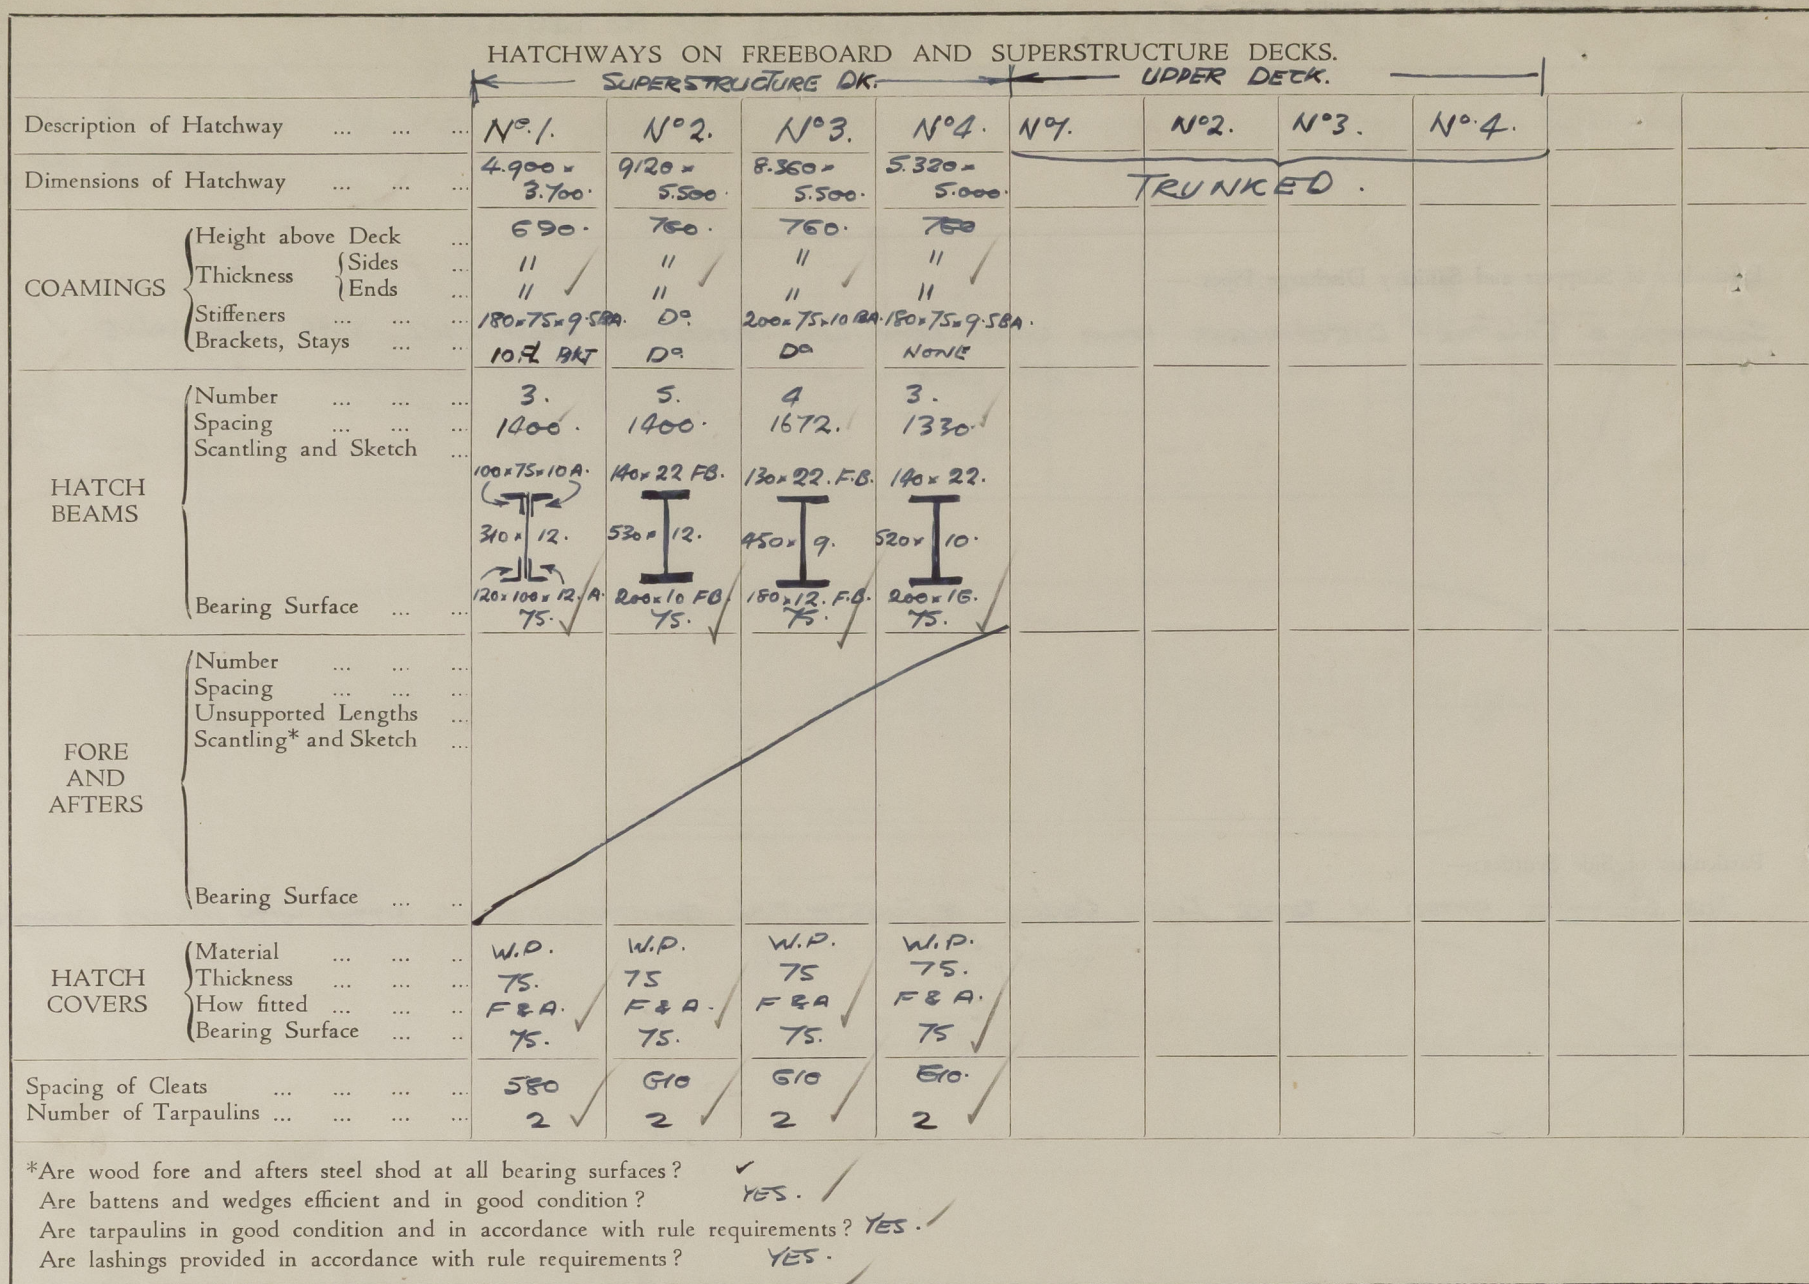 HATCHWAYS ON FREEBOARD AND SUPERSTRUCTURE DECKS.
SUPERSTRUCTURE DK. UPPER DECK.
Description of Hatchway ... ... ... Nº1. Nº2. Nº3. Nº4. Nº1. Nº2. Nº3. Nº4.
Dimensions of Hatchway ... ... 4.900 × 3.700. 9120 × 5.500 8.360 × 5.500. 5.320 × 5.000. TRUNKED.
COAMINGS
Height above Deck ... 690. 760. 760. 760
Thickness Sides ... 11 11 11 11
Ends ... 11 11 11 11
Stiffeners ... ... ... 180×75×9.5BA. Dº. 200×75×10 BA. 180×75×9.5BA.
Brackets, Stays ... ... BKT Dº. Dº NONE
HATCH BEAMS
Number ... ... ... 3. 5. 4 3.
Spacing ... ... ... 1400. 1400. 1672. 1330.
Scantling and Sketch ...
100×75×10A. 140×22 FB. 130×22. F.B. 140×22.
310× 12. 530× 12. 450× 9. 520× 10.
120×100×12. A. 200×10 FB 180×12. F.B. 200×16.
Bearing Surface ... ... 75. 75. 75. 75.
FORE AND AFTERS
Number ... ... ...
Spacing ... ... ...
Unsupported Lengths ...
Scantling* and Sketch ...
Bearing Surface ... ..
HATCH COVERS
Material ... ... .. W.P. W.P. W.P. W.P.
Thickness ... ... .. 75. 75 75 75.
How fitted ... ... .. F & A. F & A. F & A F & A.
Bearing Surface ... .. 75. 75. 75. 75
Spacing of Cleats ... ... ... ... 580 610 610 610.
Number of Tarpaulins ... ... ... ... 2 2 2 2
*Are wood fore and afters steel shod at all bearing surfaces?
Are battens and wedges efficient and in good condition? YES.
Are tarpaulins in good condition and in accordance with rule requirements? YES.
Are lashings provided in accordance with rule requirements? YES.